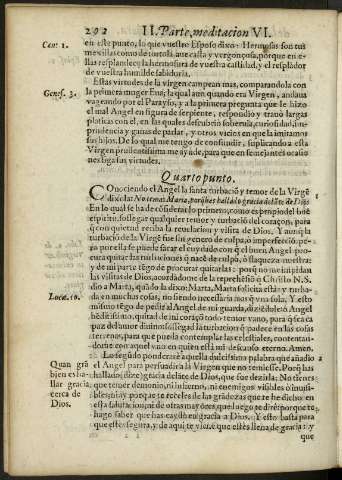 202 II. Parte, meditacion VI.
Can. 1.
en este punto, lo que vuestro Esposo dixo: Hermosas son tus
mexillas como de tortola, aue casta y vergonçosa, porque en e-
llas resplandece la hermosura de vuestra castidad, y el resplādor
de vuestra humilde sabiduria.
Estas virtudes de la virgen campean mas, comparandola con
Genes. 3.
la primera muger Eua, la qual aun quando era Virgen, andaua
vagueando por el Parayso, y a la primera pregunta que le hizo
el mal Angel en figura de serpiente, respondio y trauò largas
platicas con el, en las quales descubrio soberuia, curiosidad, im-
prudencia y ganas de parlar, y otros vicios en que la imitamos
sus hijos. De lo qual me tengo de confundir, suplicando a esta
Virgen prudentissima me ayude, para que en semejantes ocasio
nes siga sus virtudes.
Quarto punto.
COnociendo el Angel la santa turbaciō y temor de la Virgē
dixola: No temas Maria, porq̄ has hallado gracia delāte de Dios
En lo qual se ha de cōsiderar lo primero, como es propio del buē
espiritu, sossegar qualquier temor y turbaciō del coraçon, para
q̄ con quietud reciba la reuelacion y visita de Dios. Y aunq̄ la
turbaciō de la Virgē fue sin genero de culpa, o imperfeciō, pe-
ro por ella se puede sacar el cuydado con q̄ el buen Angel pro-
cura quitar las turbaciones q̄ nacē de culpa, o flaqueza nuestra:
y de mi parte tēgo de procurar quitarlas: porq̄ no me impidan
las visitas de Dios, acordadome de la reprehēsiō q̄ Christo N. S.
dio a Marta, quādo la dixo: Marta, Marta solicita estàs y turba-
Luca. 10.
da en muchas cosas, no siendo necessaria mas q̄ vna sola. Y esto
mismo tēgo de pedir al Angel de mi guarda, diziēdole: ò Angel
bēditissimo, quitad de mi coraçō todo temor vano, para q̄ saca
paz del amor diuino: sossegad la turbaciō q̄ padece en las cosas
terrenas, para que pueda contemplar las celestiales, contentan-
dome con aquel vno en quien està mi descanso eterno. Amen.
Lo segūdo ponderarè aquella dulcissima palabra que añadio 2
Quan grā
bien es ha-
llar gracia
cerca de
Dios.
el Angel para persuadir a la Virgen que no temiesse. Porq̄ has
hallado (dize) gracia delāte de Dios, que fue dezirla: No tienes
que temer demonio, ni infierno, ni enemigos visibles ò inuisi-
bles; ni ay porque te receles de las grādezas que te he dicho en
esta salutaciō, ni de otras mayores, que luego te dirè: porque te
hago saber que has caydo en gracia a Dios. Y esto basta para
que estes segura, y de aqui te viene que estès llena de gracia: y
que